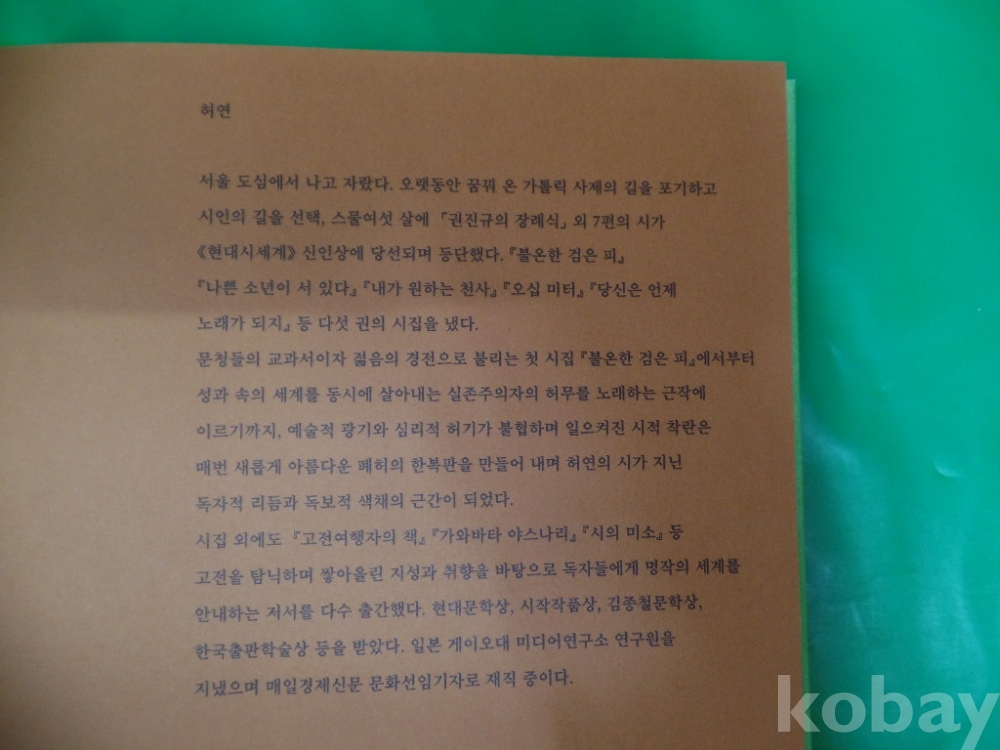 허연
서울 도심에서 나고 자랐다. 오랫동안 꿈꿔 온 가톨릭 사제의 길을 포기하고
시인의 길을 선택, 스물여섯 살에 「권진규의 장례식」 외 7편의 시가
《현대시세계》 신인상에 당선되며 등단했다. 『불온한 검은 피』
『나쁜 소년이 서 있다』 『내가 원하는 천사』 『오십 미터』 『당신은 언제
노래가 되지』 등 다섯 권의 시집을 냈다.
문청들의 교과서이자 젊음의 경전으로 불리는 첫 시집 『불온한 검은 피』에서부터
성과 속의 세계를 동시에 살아내는 실존주의자의 허무를 노래하는 근작에
이르기까지, 예술적 광기와 심리적 허기가 불협하며 일으켜진 시적 착란은
매번 새롭게 아름다운 폐허의 한복판을 만들어 내며 허연의 시가 지닌
독자적 리듬과 독보적 색채의 근간이 되었다.
시집 외에도 『고전여행자의 책』 『가와바타 야스나리』 『시의 미소』 등
고전을 탐닉하며 쌓아올린 지성과 취향을 바탕으로 독자들에게 명작의 세계를
안내하는 저서를 다수 출간했다. 현대문학상, 시작작품상, 김종철문학상,
한국출판학술상 등을 받았다. 일본 게이오대 미디어연구소 연구원을
지냈으며 매일경제신문 문화선임기자로 재직 중이다.
kobay